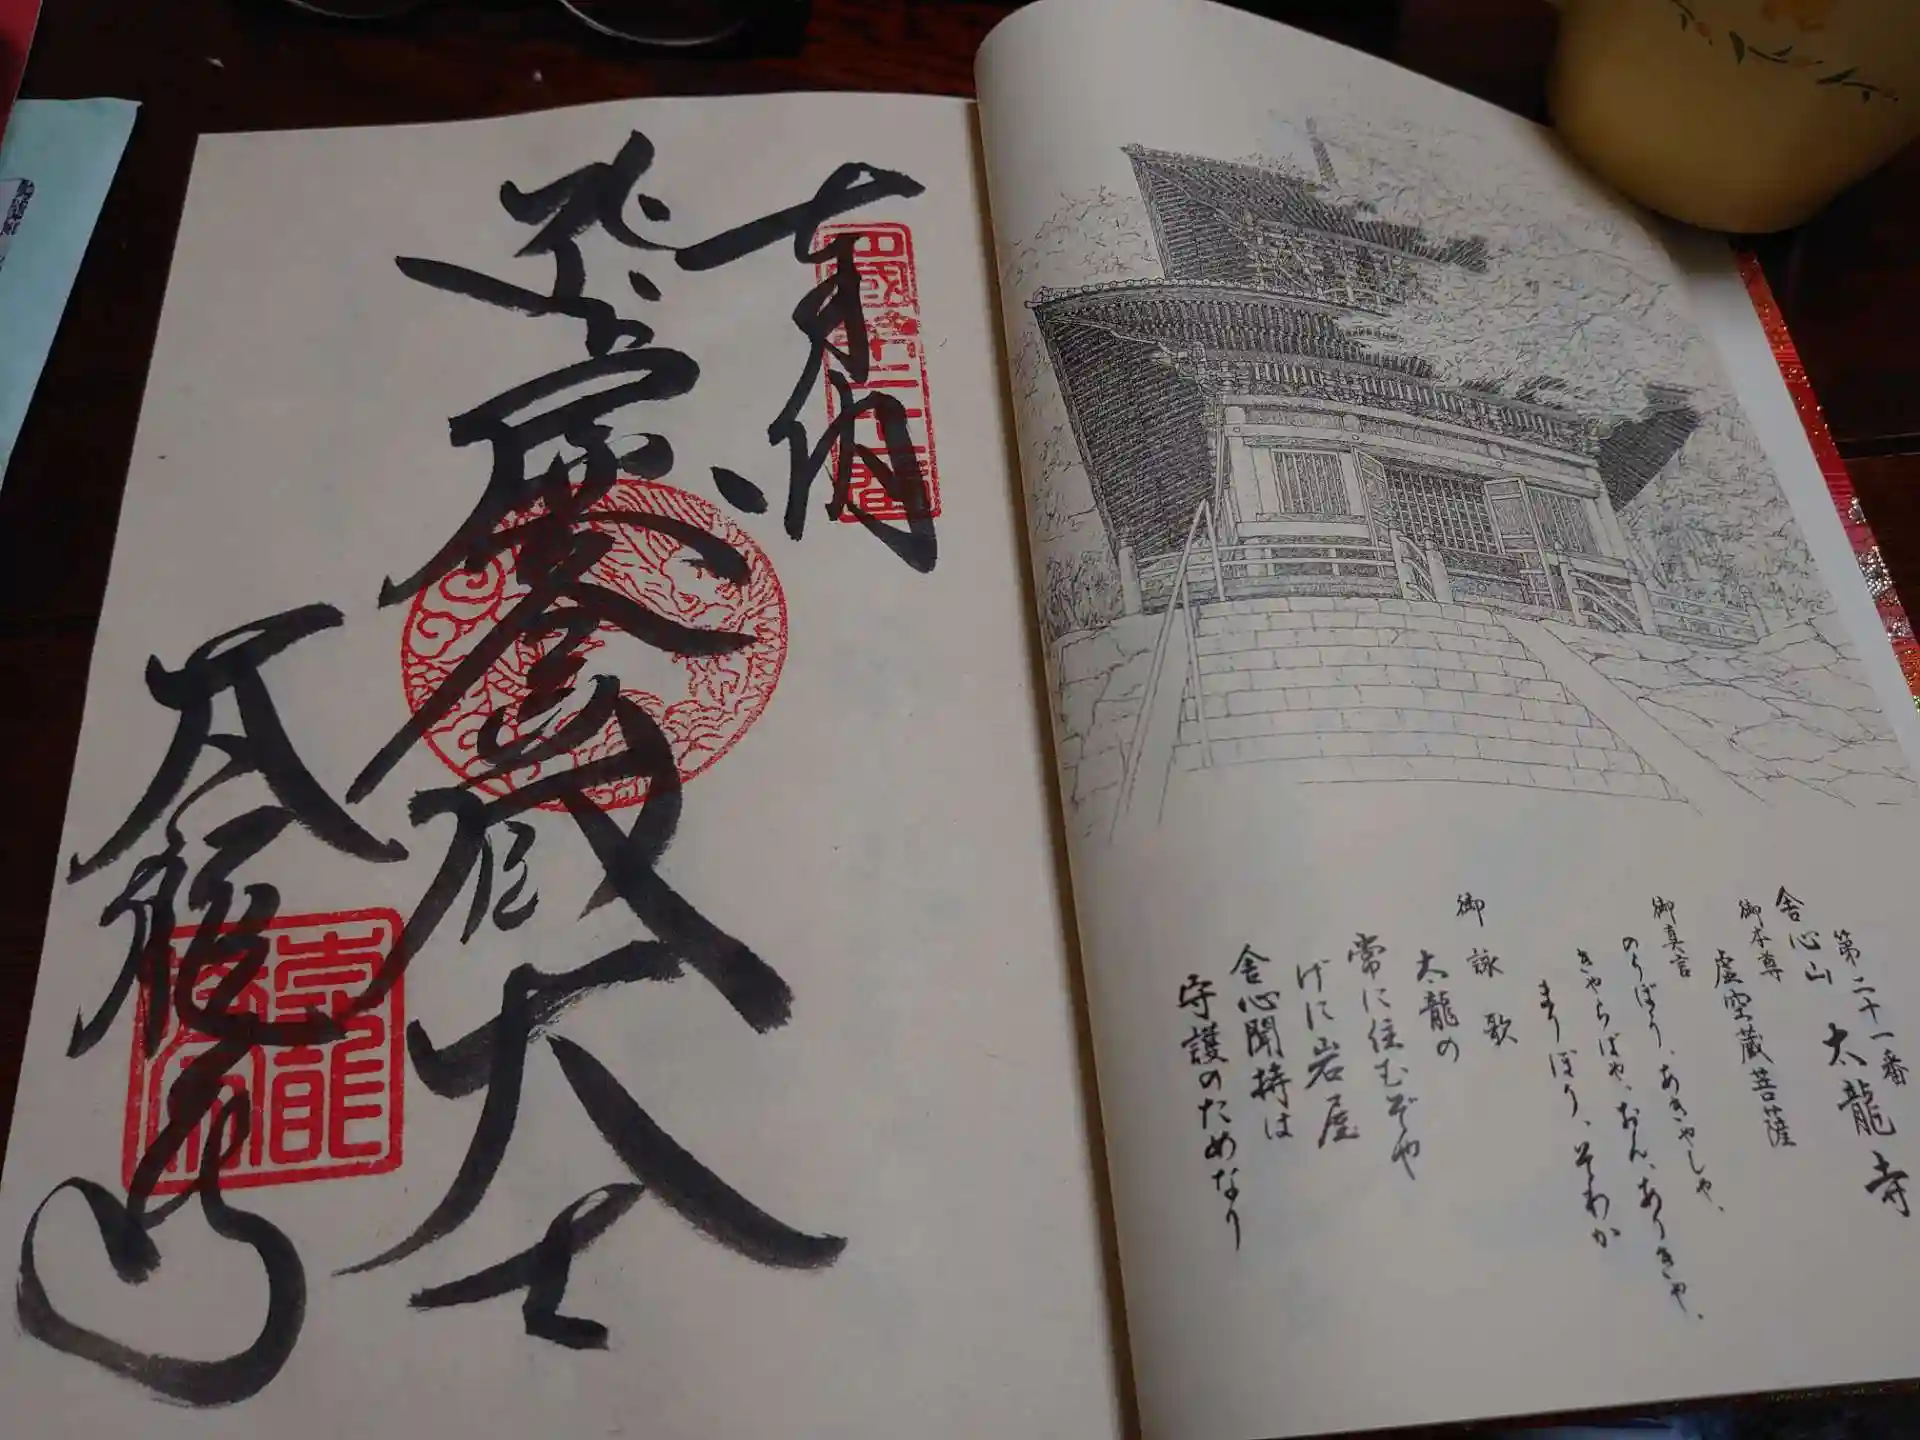 奉納
虚空蔵大士
太龍寺
四國第二十一番
第二十一番
舎心山 太龍寺
御本尊
虚空蔵菩薩
御真言
のうぼう、あきゃしゃ、
きゃらばや、おん、ありきゃ、
まりぼり、そわか
御詠歌
太龍の
常に住むぞや
げに岩屋
舎心聞持は
守護のためなり